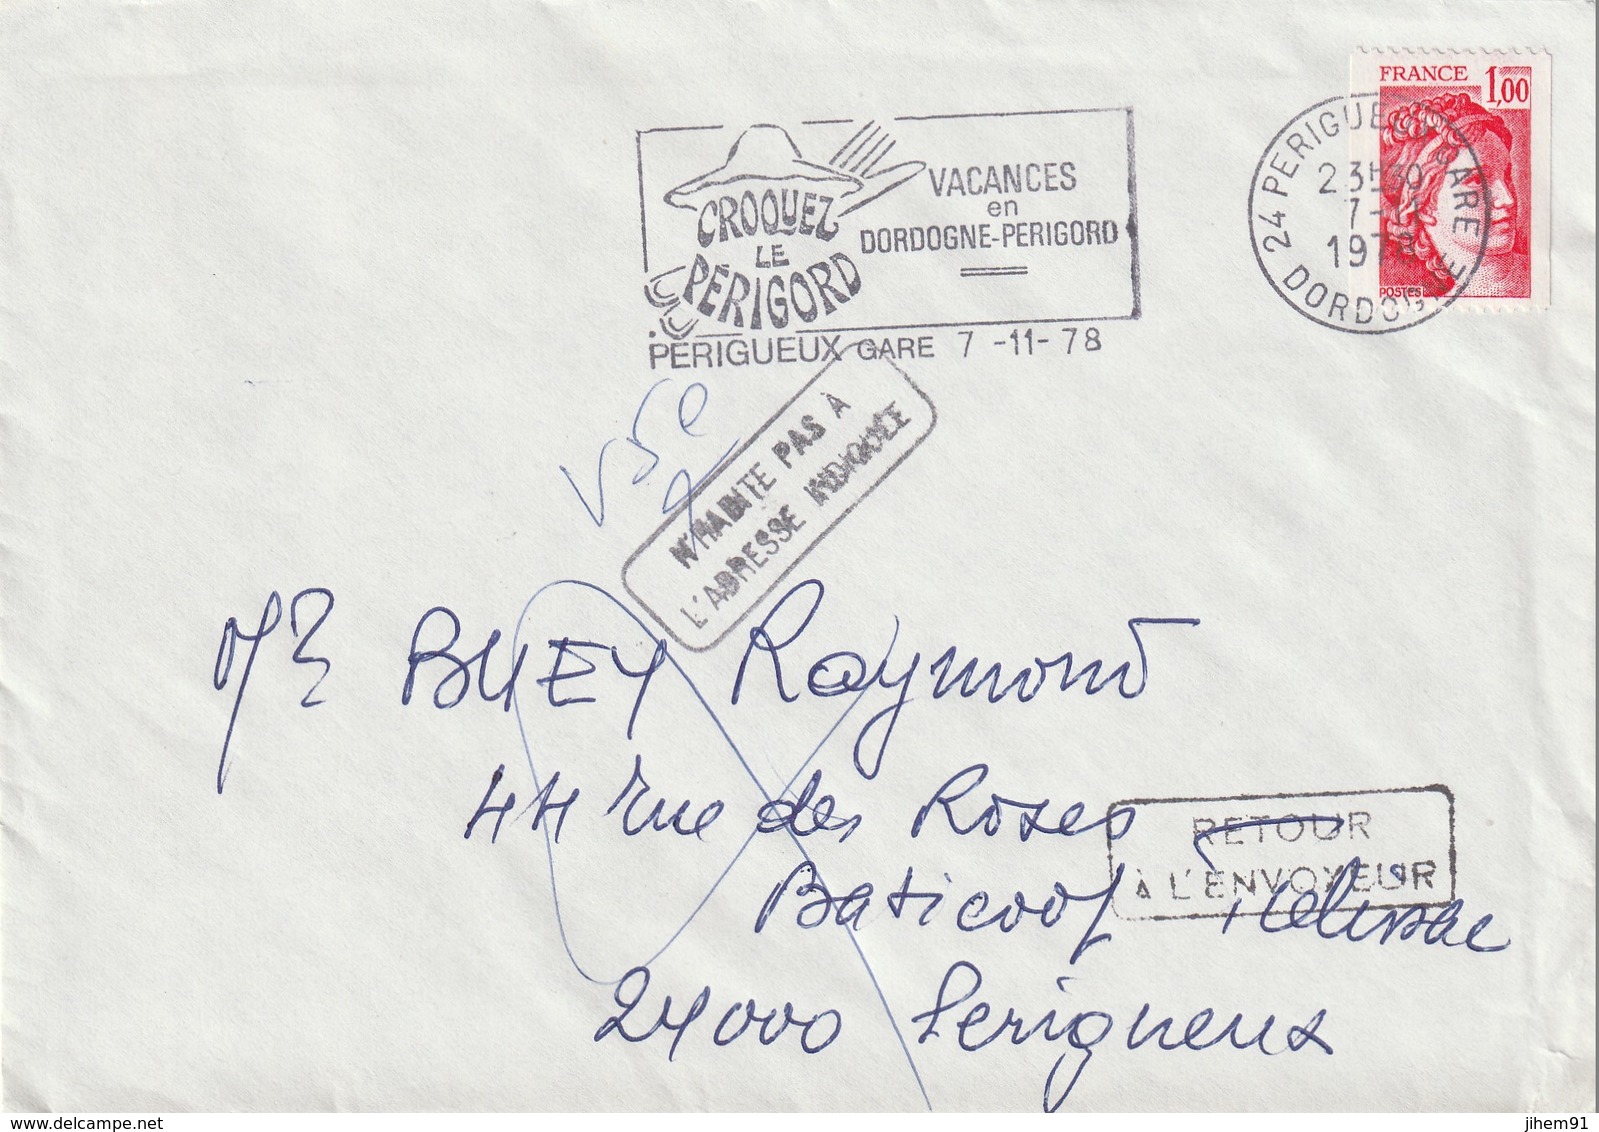 FRANCE 1,00
POSTES
24 PERIGUEUX GARE
23H30
7-11
1978
DORDOGNE
CROQUEZ
LE
PÉRIGORD
VACANCES
en
DORDOGNE-PERIGORD
PERIGUEUX GARE 7 -11- 78
N'HABITE PAS À
L'ADRESSE INDIQUÉE
Mr BUEY Raymond
44 rue des Roses
RETOUR
À L'ENVOYEUR
Baticoop
24000 Perigueux
delcampe.net
jihem91